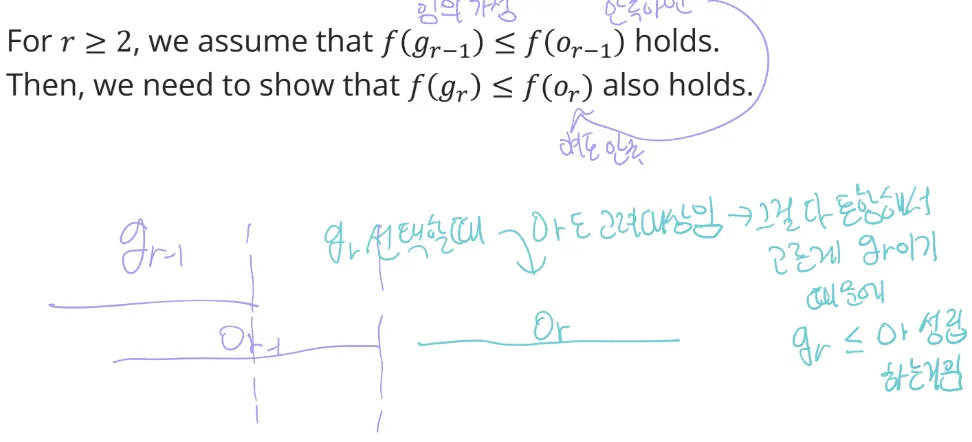 임의 가정
만족하면
For r ≥ 2, we assume that f(gᵣ₋₁) ≤ f(oᵣ₋₁) holds.
Then, we need to show that f(gᵣ) ≤ f(oᵣ) also holds.
얘도 만족
gr-1
gr 선택할때 → Or도 고려대상임 → 그걸 다 통합해서
고른게 gr이기
때문에
gr ≤ Or 성립
하는거임
Or-1
Or